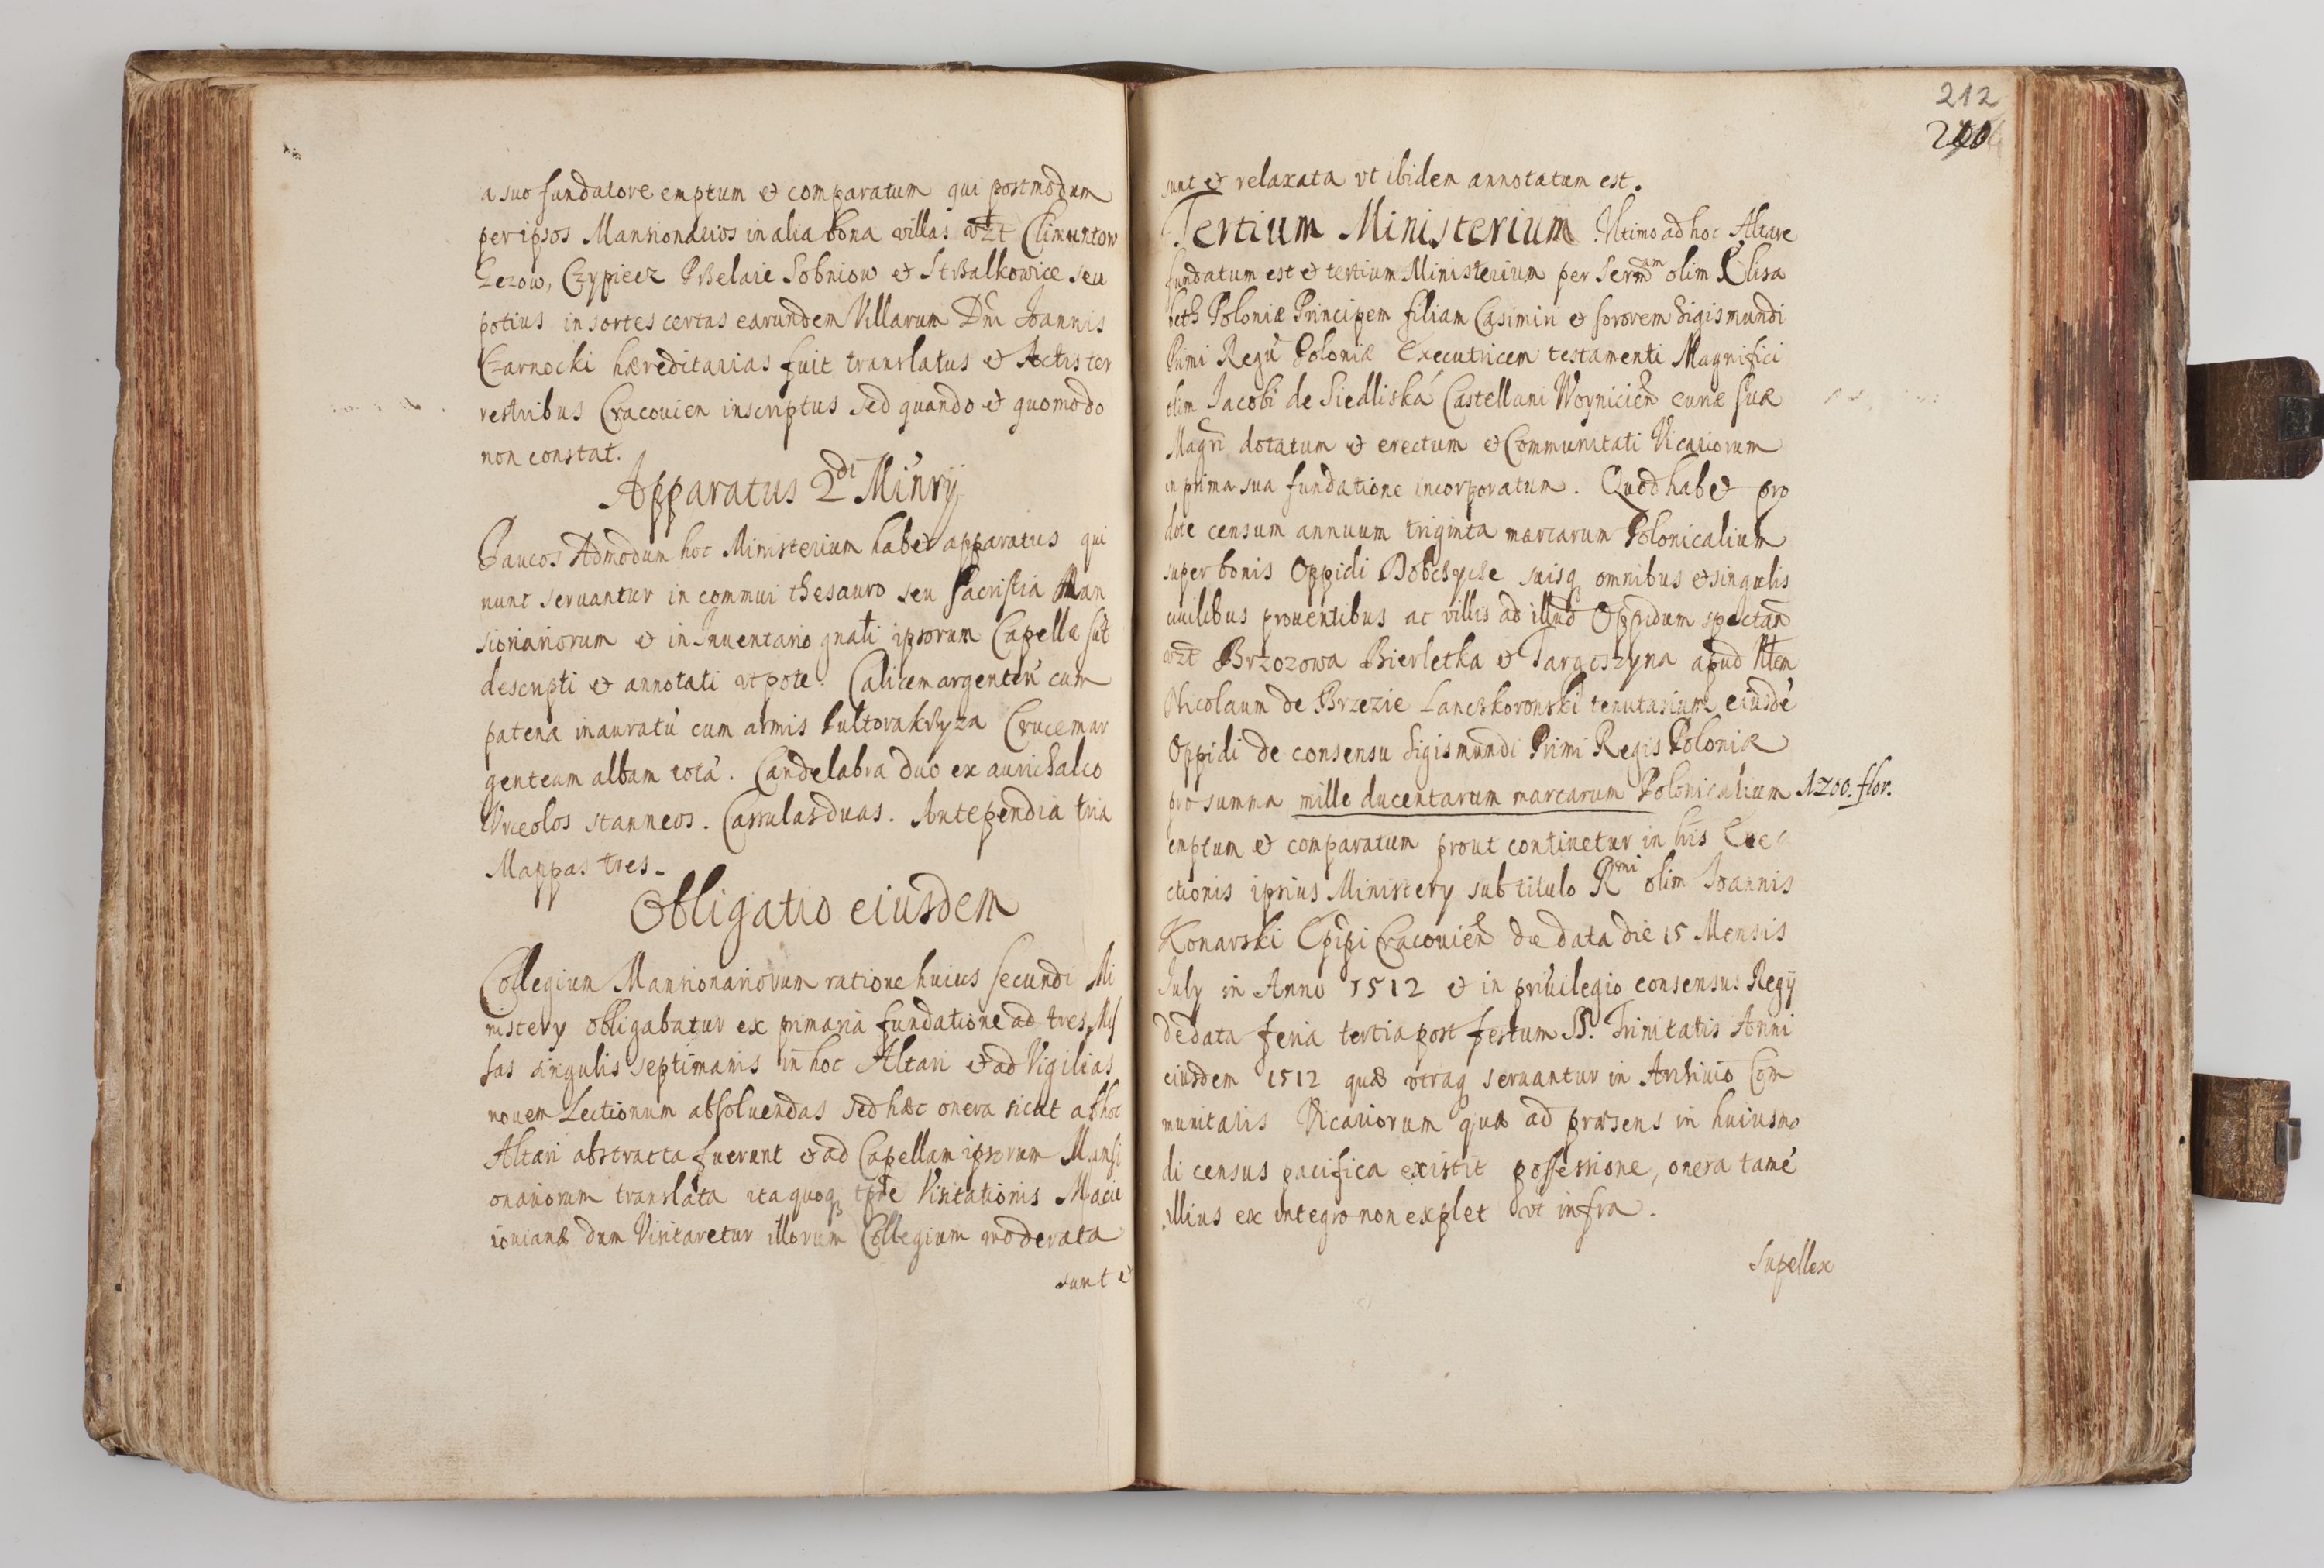 a suo fundatore emptum et comparatum qui postmodum
per ipsos Mansionarios in alia bona villas vzt Climuntow
Lezow, Czypiecz Przelaie Sobniow et Strzalkowice seu
potius in sortes certas earundem Villarum Dni Joannis
Czarnocki hæreditarias fuit translatus et Actis ter
restribus Cracouien inscriptus sed quando et quomodo
non constat.
Apparatus 2di Minrij
Paucos Admodum hoc Ministerium habet apparatus qui
nunc seruantur in commui thesauro seu sacristia Man
sionariorum et in Inuentario gnali ipsorum Capellæ sut
descripti et annotati vt pote. Calicem argenteu cum
patena inauratu cum armis Pultorakrzyza Crucem ar
genteam albam tota. Candelabra duo ex aurichalco
Vrceolos stanneos. Cassulas duas. Antependia tria
Mappas tres.
Obligatio eiusdem
Collegium Mansionariorum ratione huius secundi Mi
nistery obligabatur ex primaria fundatione ad tres Mis
sas singulis septimanis in hoc Altari et ad Vigilias
nouem Lectionum absoluendas sed hæc onera sicut ab hoc
Altari abstracta fuerunt et ad Capellam ipsorum Mansi
onariorum translata ita quoq tpre Visitationis Macie
iouianæ dum Visitaretur illorum Collegium moderata
sunt et
212
200
sunt et relaxata vt ibidem annotatum est.
Tertium Ministerium Vltimo ad hoc Altare
fundatum est et tertium Ministerium per Sermam olim Elisa
beth Poloniæ Principem filiam Casimiri et sororem Sigismundi
Primi Regu Poloniæ Executricem testamenti Magnifici
olim Jacobi de Siedliska Castellani Woynicien curiæ suæ
Magri dotatum et erectum et Communitati Vicariorum
in prima sua fundatione incorporatum. Quod habet pro
dote censum annuum triginta marcarum Polonicalium
super bonis Oppidi Dobczycze suisq omnibus et singulis
ciuilibus prouentibus ac villis ad illud Oppidum spectan
vzt Brzozowa Bierletka et Targoszyna apud
Nicolaum de Brzezie Lanczkoronski tenutarium eiusde
Oppidi de consensu Sigismundi Primi Regis Poloniæ
pro summa mille ducentarum marcarum Polonicalium 1200. flor.
emptum et comparatum prout continetur in lris Ere
ctionis ipsius Ministery sub titulo Rmi olim Joannis
Konarski Epipi Cracouien de data die 15 Mensis
July in Anno 1512 et in priuilegio consensus Regij
de data feria tertia post festum SS. Trinitatis Anni
eiusdem 1512 quæ vtraq seruantur in Archiuio Com
munitatis Vicariorum quæ ad præsens in huiusmo
di census pacifica existit possessione, onera tame
illius ex integro non explet vt infra.
Supellex